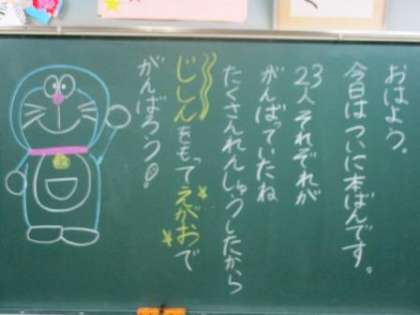 おはよう。
今日はついに本ばんです。
23人それぞれが
がんばていたね
たくさんれんしゅうしたから
じしんをもってえがおで
がんばろう!